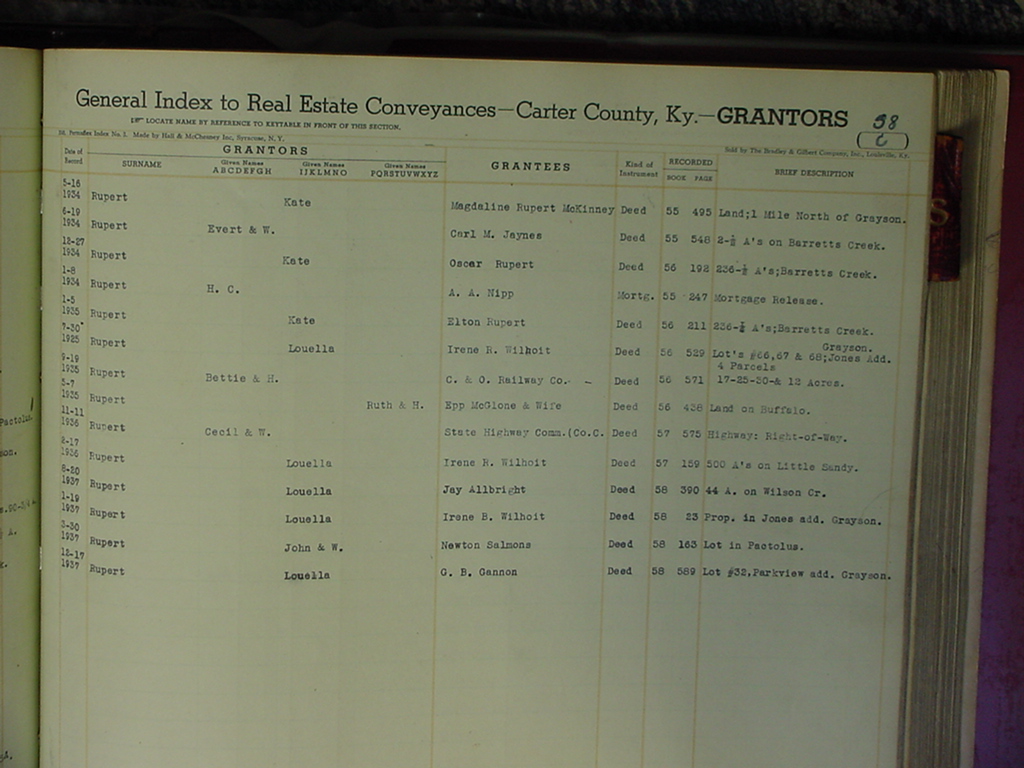 General Index to Real Estate Conveyances—Carter County, Ky.—GRANTORS
58
C
LOCATE NAME BY REFERENCE TO KEYTABLE IN FRONT OF THIS SECTION.
Made by Hall & McChesney Inc, Syracuse, N. Y.
Sold by The Bradley & Gilbert Company, Inc., Louisville, Ky.
Date of Record SURNAME GRANTORS Given Names ABCDEFGH Given Names IJKLMNO Given Names PQRSTUVWXYZ GRANTEES Kind of Instrument RECORDED BOOK PAGE BRIEF DESCRIPTION
5-16
1934 Rupert Kate Magdaline Rupert McKinney Deed 55 495 Land;1 Mile North of Grayson.
6-19
1934 Rupert Evert & W. Carl M. Jaynes Deed 55 548 2-½ A's on Barretts Creek.
12-27
1934 Rupert Kate Oscar Rupert Deed 56 192 236-½ A's;Barretts Creek.
1-8
1934 Rupert H. C. A. A. Nipp Mortg. 55 247 Mortgage Release.
1-5
1935 Rupert Kate Elton Rupert Deed 56 211 236-½ A's;Barretts Creek.
7-30
1925 Rupert Louella Irene R. Wilhoit Deed 56 529 Lot's #66,67 & 68;Jones Add. Grayson.
9-19
1935 Rupert Bettie & H. C. & O. Railway Co. Deed 56 571 4 Parcels 17-25-30-& 12 Acres.
5-7
1935 Rupert Ruth & H. Epp McGlone & Wife Deed 56 438 Land on Buffalo.
11-11
1936 Rupert Cecil & W. State Highway Comm.(Co.C. Deed 57 575 Highway: Right-of-Way.
1936 Rupert Louella Irene R. Wilhoit Deed 57 159 500 A's on Little Sandy.
8-20
1937 Rupert Louella Jay Allbright Deed 58 390 44 A. on Wilson Cr.
1-19
1937 Rupert Louella Irene B. Wilhoit Deed 58 23 Prop. in Jones add. Grayson.
3-30
1937 Rupert John & W. Newton Salmons Deed 58 163 Lot in Pactolus.
12-17
1937 Rupert Louella G. B. Gannon Deed 58 589 Lot #32,Parkview add. Grayson.
Pactolus.
S